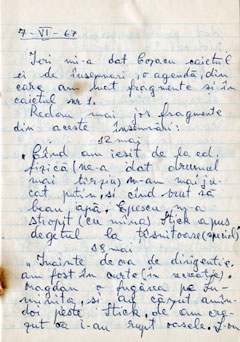 7-VI-67
Ieri mi-a dat Cojocu caietul
ei de însemnări, o agendă, din
care am luat fragmente și în
caietul nr. 1.
Redau mai jos fragmente
din aceste însemnări:
12 mai
„Cînd am ieșit de la ed.
fizică (ne-a dat drumul
mai tîrziu) m-am mai ju-
cat puțin, și cînd but să
beau apă. Epescu m-a
stropit (cu mîna) Stick a pus
degetul la țîșnitoare
18 mai
„Înainte de ora de dirigenție
am fost în curte (în recreație).
Magdan o fugărea pe Lu-
minița, și au căzut amîn-
doi peste Stick, de am cre-
zut că i-au rupt oasele.